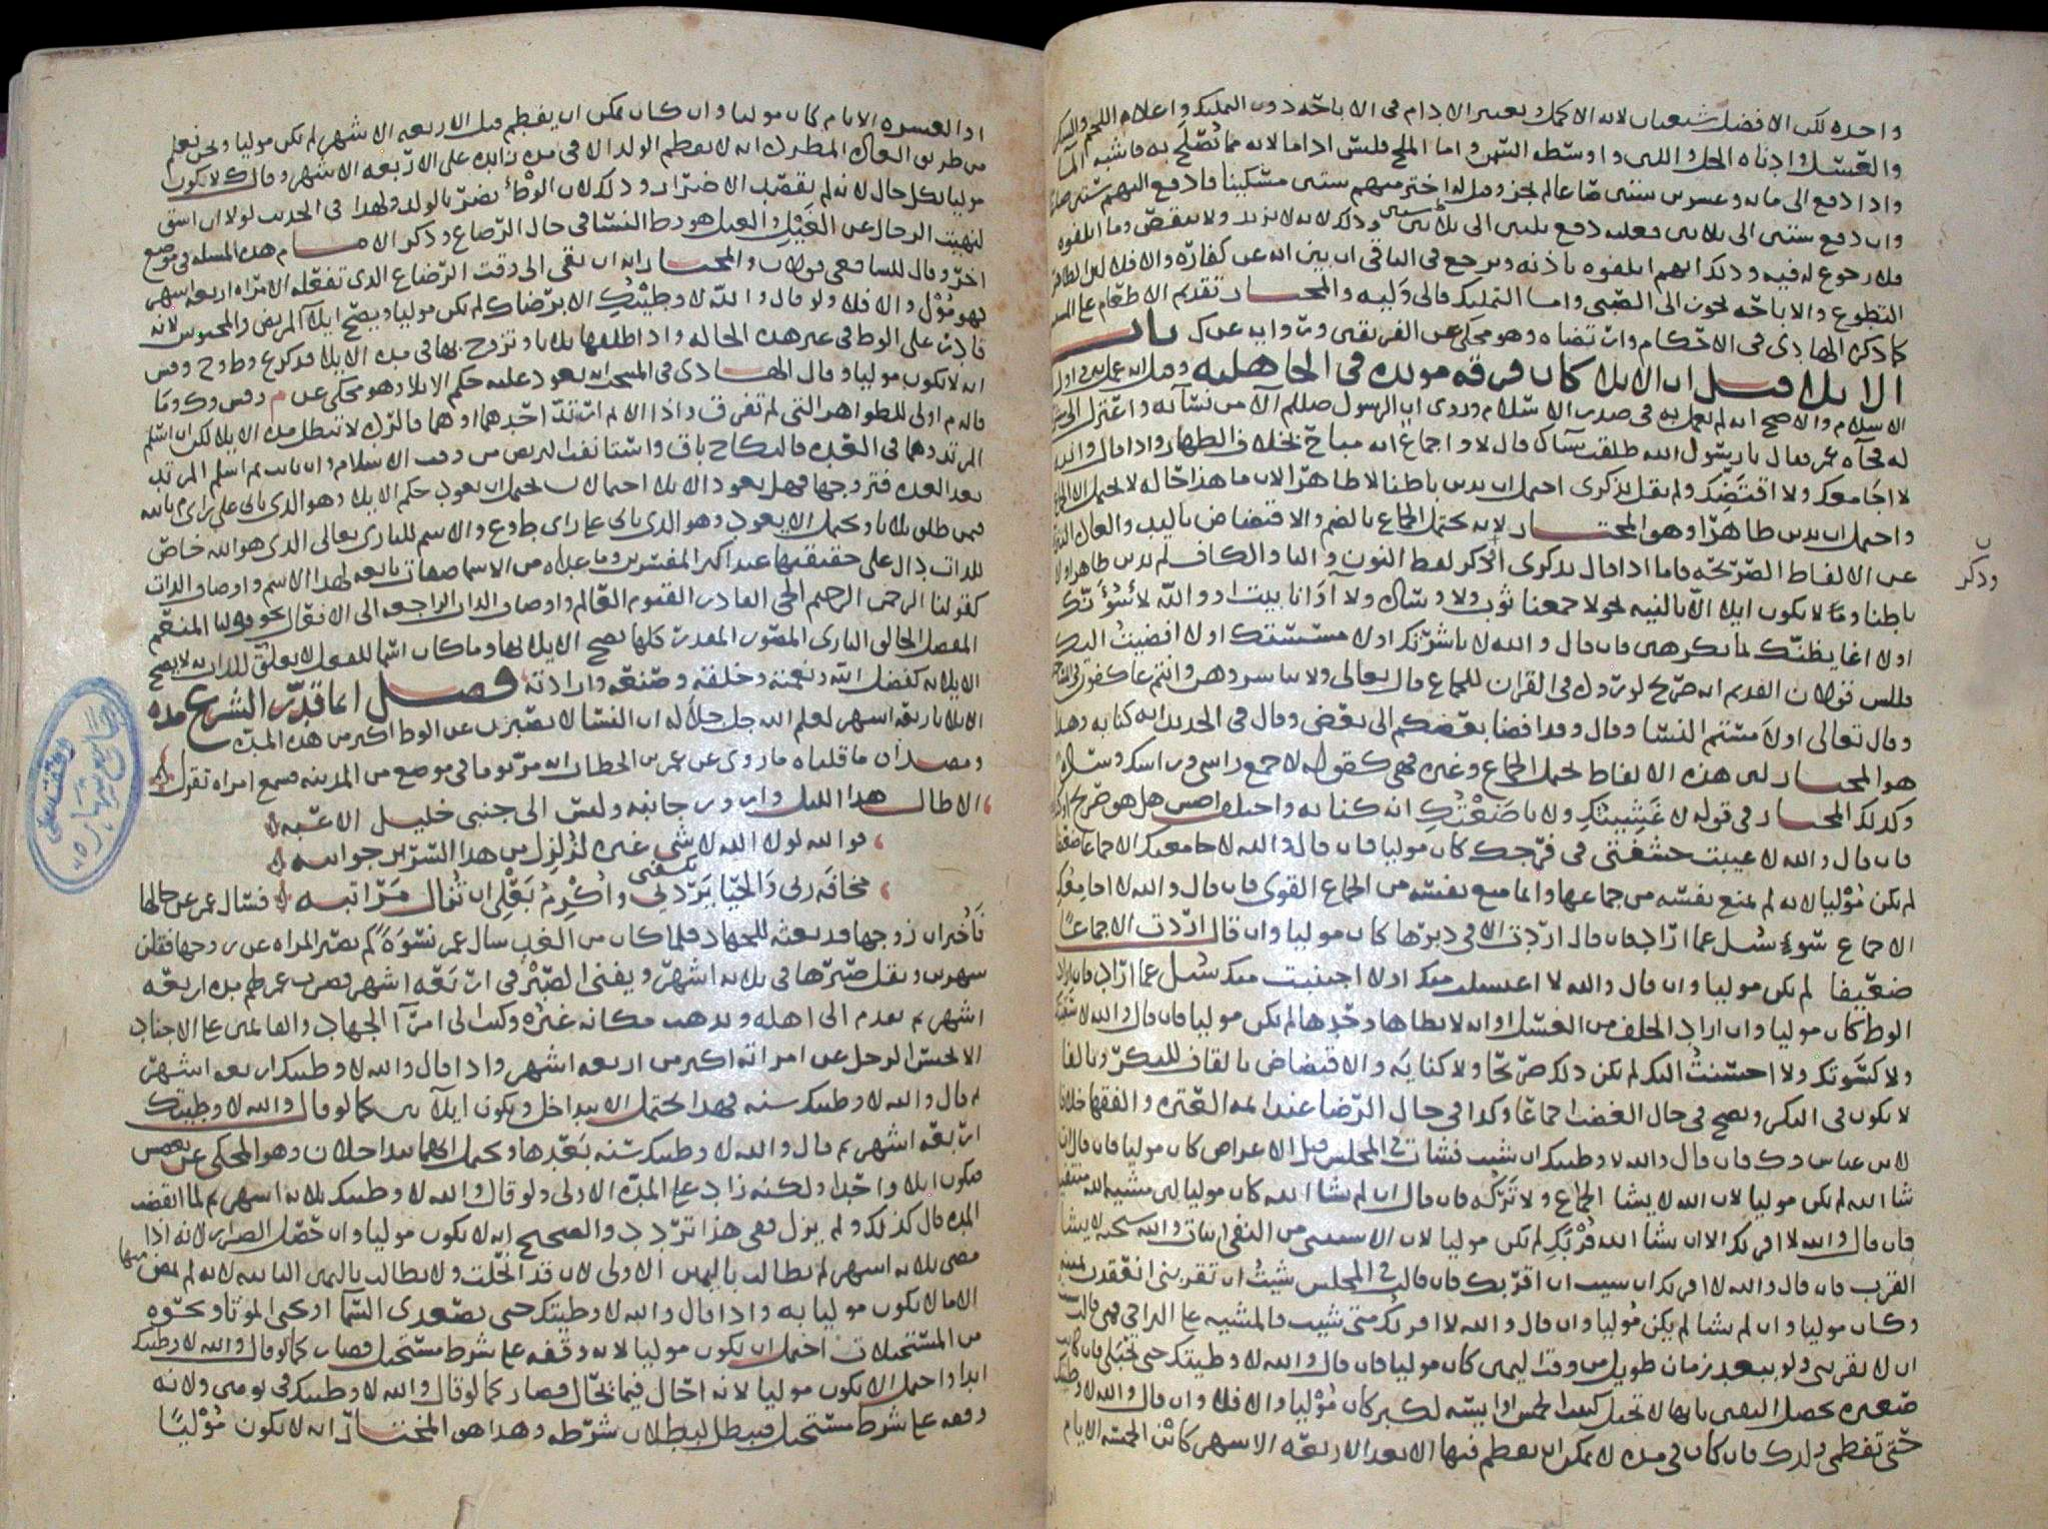 واحده لكن الافضل شعبان لانه الاكمل ويعتبر الادام في الاباحه دون التمليك واعلاه اللحم والسكر
والعسل وادناه الخل واللبن واوسطه السمن واما الملح فليس اداما لانه مما تصلح به فاشبه الما
واذا دفع الى مايه وعشرين ستين صاعا لم يجز وقيل له اختر منهم ستين مسكينا فادفع اليهم ستين صاعا
وان دفع ستين الى ثلاثين فعليه دفع ثلثين الى ثلاثين وذلك لانه لا يزيد ولا ينقص وما اتلفوه
فلا رجوع له فيه وذلك انهم اتلفوه باذنه ويرجع في الباقي ان بين انه عن كفاره والا فلا لان الظاهر
التطوع والاباحه تجوز الى الصبي واما التمليك فالى وليه والمختار تقديم الاطعام على
كما ذكره الهادي في الاحكام وارتضاه وهو محكي عن الفريقين وروايه عن ك باب
الايلا قيل ان الايلا كان فرقه موبده في الجاهليه وقيل انه عمل به في اول
الاسلام والاصح انه لم يعمل به في صدر الاسلام وروي ان الرسول صللم آلا من نسآئه واعتزل
له فجآه عمر فقال يا رسول الله طلقت نسآك قال لا واجماع انه مباح بخلاف الظهار واذا قال والله
لا اجامعك ولا اقتضك ولم يقل بذكري احتمل ان يدين باطنا لا ظاهرا لان ما هذا حاله لا يحتمل الا الجماع
واحتمل ان يدين ظاهرا وهو المختار لانه يحتمل الجماع بالضم والاقتضاض باليد
عن الالفاظ الصريحه فاما اذا قال بذكري او ذكر لفظ النون واليا والكاف لم يدين ظاهرا ولا
باطنا وما لا يكون ايلا الا بالنيه نحو لا جمعنا ثوب ولا وساد ولا آوانا بيت او والله لاسوءنك
اولا اغايظنك لما تكرهين فان قال والله لا باشرتك اولا مسستك اولا افضيت اليك
فللش قولان القديم انه صريح لوروده في القران للجماع قال تعالى ولا تباشروهن وانتم عاكفون في المساجد
وقال تعالى اولامستم النسا وقال وقد افضا بعضكم الى بعض وقال في الجديد انه كنايه وهذا
هو المختار لان هذه الالفاظ تحتمل الجماع وغيره فهي كقوله لا جمع راسي وراسك وساد
وكذلك المختار في قوله لا غشيتك ولا باضعتك انه كنايه واختلف اصش هل هو صريح او كنايه
فان قال والله لا غيبت حشفتي في فرجك كان موليا فان قال والله لا جامعتك الا جماعا ضعيفا
لم يكن موليا لانه لم يمنع نفسه من جماعها وانما منع نفسه من الجماع القوي فان قال والله لا اجامعك
الا جماع سوء سئل عما اراد فان قال اردت الا في دبرها كان موليا وان قال اردت الا جماعا
ضعيفا لم يكن موليا وان قال والله لا اغتسلت منك اولا اجنبت منك سئل عما اراد فان اراد
الوطئ كان موليا وان اراد الحلف من الغسل او انه لا يطاها وحدها لم يكن موليا فان قال والله لا
ولا كسوتك ولا احسنت اليك لم يكن ذلك صريحا ولا كنايه والاقتضاض بالقاف للبكر وبالفا
لا يكون في البكر ويصح في حال الغضب اجماعا وكذا في حال الرضا عند ايمه العتره والفقها خلافا
لابن عباس وك فان قال والله لا وطيتك ان شيت فشات في المجلس قبل الاعراض كان موليا فان قال ان
شا الله لم يكن موليا لان الله لا يشا الجماع ولا تركه فان قال ان لم يشا الله كان موليا لان مشيه الله منتفيه
فان قال والله لا اقربك الا ان يشا الله قربك لم يكن موليا لان الاستثنى من النفي اثبات والله سبحنه لا يشا
القرب فان قال والله لا اقربك ان شيت ان اقربك فان قالت في المجلس شيت ان تقربني انعقدت يمينه
وكان موليا وان لم يشا لم يكن موليا وان قال والله لا اقربك متى شيت فالمشيه على التراخي فمتى قالت شيت
ان لا يقربني ولو ببعد زمان طويل من وقت اليمين كان موليا فان قال والله لا وطيتك حتى تحبلي فان كانت
صغيره يحصل اليقين بانها لا تحبل كبنت الخمس او ايسه لكبر كان موليا والا فلا وان قال والله لا وطيتك
حتى تفطمي ولدك فان كان في مده لا يمكن ان يفطم فيها الا بعد الاربعه الاشهر كابن الخمسه الايام
وذكر
او العشره الايام كان موليا وان كان يمكن ان يفطم قبل الاربعه الاشهر لم يكن موليا ونحن نعلم
من طريق العاده المطرده انه لا يفطم الولد الا في مده زايده على الاربعه الاشهر وقال ك لا يكون
موليا بكل حال لانه لم يقصد الاضرار وذلك لان الوطء يضر بالولد ولهذا في الحديث لولا ان اشق
لنهيت الرجال عن الغيل والغيل هو وطئ النسا في حال الرضاع وذكر الامام هذه المسله في موضع
اخر وقال للشافعي قولان والمختار انه ان بقي الى وقت الرضاع الذي تفعله الامراه اربعه اشهر
فهو مؤل والا فلا ولو قال والله لا وطيتك الا برضاك لم يكن موليا ويصح ايلآ المريض والمحبوس لانه
قادر على الوطئ في غير هذه الحاله واذا طلقها ثلاثا وتزوج بها في مده الايلا فذكر ع وط وح وقش
انه لا يكون موليا وقال الهادي في المنتخب انه يعود عليه حكم الايلا وهو محكي عن م وقش وك وما
قاله م اولى للظواهر التي لم تفرق واذا الا ثم ارتد احدهما او هما فالرده لا تبطل مده الايلا لكن ان اسلم
المرتد وهما في العده فالنكاح باق واستانفت التربص من وقت الاسلام وان بانت ثم اسلم المرتد
بعد العده فتزوجها فهل يعود الايلا احتمالان يحتمل ان يعود حكم الايلا وهو الذي ياتي على راي
فيمن طلق ثلاثا ويحتمل الا يعود وهو الذي ياتي على راي ط وع والاسم للباري تعالى الذي هو الله خاص
للذات دال على حقيقتها عند اكثر المفسرين وما عداه من الاسما صفات تابعه لهذا الاسم واوصاف الذات
كقولنا الرحمن الرحيم الحي القادر القيوم العالم واوصاف الذات الراجعه الى الافعال نحو قولنا المنعم
المفضل الخالق الباري المصور المقدر كلها يصح الايلا بها وما كان اسما للفعل لا يعلق للذات به لا يصح
الايلا به كفضل الله ونعمته وخلقه وصنعه وارادته فصل انما قدر الشرع مده
الايلا باربعه اشهر لعلم الله جل جلاله ان النسا لا يصبرن عن الوطئ اكثر من هذه المده
ومصداق ما قلناه ما روي عن عمر بن الخطاب انه مر يوما في موضع من المدينه فسمع امراه تقول
الا طال هذا الليل وازور جانبه وليس الى جنبي خليل الاعبه
فوالله لولا الله لا شي غيره لزلزل من هذا السرير جوانبه
مخافه ربي والحيا يردني تكفني واكرم بعلي ان تنال مراتبه فسال عمر عن حالها
فاخبر ان زوجها قد بعثه للجهاد فلما كان من الغد سال عمر نسوة كم يصبر المراه عن زوجها فقلن
شهرين ويقل صبرها في ثلاثه اشهر ويفنى الصبر في اربعه اشهر فضرب عمر لهم مده اربعه
اشهر ثم يقدم الى اهله ويذهب مكانه غيره وكتب الى امرآ الجهاد والقايمين على الاجناد
الا يحبس الرجل عن امراته اكثر من اربعه اشهر واذا قال والله لا وطيتك اربعه اشهر
ثم قال والله لا وطيتك سنه فهذا يحتمل الا يتداخل ويكون ايلآئين كما لو قال والله لا وطيتك
اربعه اشهر ثم قال والله لا وطيتك سنه بعدها ويحتمل انهما يتداخلان وهو المحكي عن بعضهم
فيكون ايلا واحدا ولكنه زاد على المده الاولى ولو قال والله لا وطيتك ثلاثه اشهر ثم لما انقضت
المده قال كذلك ولم يزل ففي هذا تردد والصحيح انه لا يكون موليا وان حصل الضرار لانه اذا
مضى ثلاثه اشهر لم يطالب باليمين الاولى لان قد انحلت ولا يطالب باليمين الثانيه لانه لم يمض منها
الا ما لا يكون موليا به واذا قال والله لا وطيتك حتى تصعدي السما او تحيي الموتا ونحوه
من المستحيلات احتمل ان يكون موليا لانه وقفه على شرط مستحيل فصار كما لو قال والله لا وطيتك
ابدا واحتمل الا يكون موليا لانه احال فيما يحال فصار كما لو قال والله لا وطيتك في يومي ولانه
وقفه على شرط مستحيل فيبطل لبطلان شرطه وهذا هو المختار انه لا يكون موليا